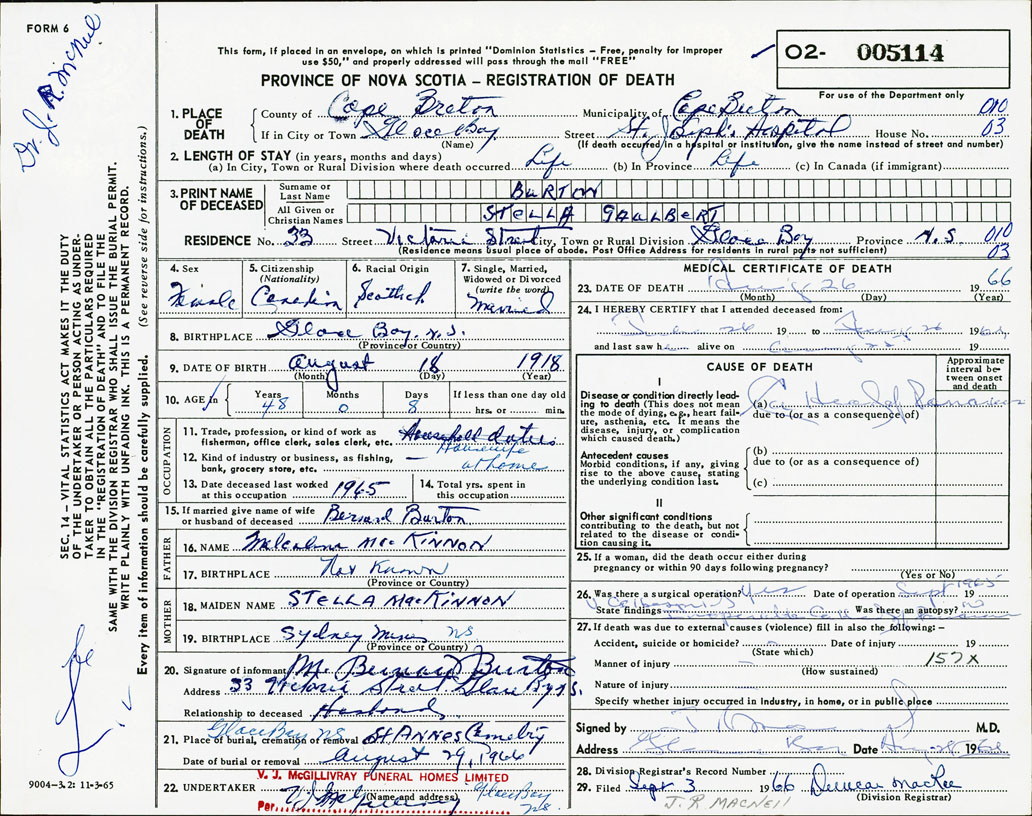 FORM 6
This form, if placed in an envelope, on which is printed "Dominion Statistics – Free, penalty for improper
use $50," and properly addressed will pass through the mail "FREE"
PROVINCE OF NOVA SCOTIA – REGISTRATION OF DEATH
02- 005114
For use of the Department only
Dr. J. R. McNeil
1. PLACE OF DEATH
County of Cape Breton Municipality of Cape Breton 010
If in City or Town Glace Bay Street St. Joseph's Hospital House No. 03
(Name) (If death occurred in a hospital or institution, give the name instead of street and number)
2. LENGTH OF STAY (in years, months and days)
(a) In City, Town or Rural Division where death occurred Life (b) In Province Life (c) In Canada (if immigrant)
3. PRINT NAME OF DECEASED
Surname or Last Name BURTON
All Given or Christian Names STELLA GAULBERT
RESIDENCE No. 33 Street Victoria Street City, Town or Rural Division Glace Bay Province N.S. 010
(Residence means usual place of abode. Post Office Address for residents in rural parts not sufficient) 03
4. Sex Female
5. Citizenship (Nationality) Canadian
6. Racial Origin Scottish
7. Single, Married, Widowed or Divorced (write the word) Married
8. BIRTHPLACE Glace Bay, N.S.
(Province or Country)
9. DATE OF BIRTH August 18 1918
(Month) (Day) (Year)
10. AGE Years 48 Months 0 Days 8 If less than one day old hrs. or min.
OCCUPATION
11. Trade, profession, or kind of work as fisherman, office clerk, sales clerk, etc. Household duties
Housewife
12. Kind of industry or business, as fishing, bank, grocery store, etc. – at home
13. Date deceased last worked at this occupation 1965
14. Total yrs. spent in this occupation
15. If married give name of wife or husband of deceased Bernard Burton
FATHER
16. NAME MacKINNON
17. BIRTHPLACE Not Known
(Province or Country)
MOTHER
18. MAIDEN NAME STELLA MacKINNON
19. BIRTHPLACE Sydney Mines NS
(Province or Country)
20. Signature of informant Mr Bernard Burton
Address 33 Victoria Street Glace Bay N.S.
Relationship to deceased Husband
Glace Bay NS
21. Place of burial, cremation or removal St ANNES Cemetery
Date of burial or removal August 29, 1966
V. J. McGILLIVRAY FUNERAL HOMES LIMITED
22. UNDERTAKER (Name and address) Glace Bay NS.
Per
MEDICAL CERTIFICATE OF DEATH
23. DATE OF DEATH 26 1966
(Month) (Day) (Year)
24. I HEREBY CERTIFY that I attended deceased from:
26 19 to 26 196
and last saw h alive on 19
CAUSE OF DEATH
Approximate interval between onset and death
I
Disease or condition directly leading to death (This does not mean the mode of dying, e.g., heart failure, asthenia, etc. It means the disease, injury, or complication which caused death.)
(a) Ca Head of Pancreas
due to (or as a consequence of)
Antecedent causes
Morbid conditions, if any, giving rise to the above cause, stating the underlying condition last.
(b)
due to (or as a consequence of)
(c)
II
Other significant conditions contributing to the death, but not related to the disease or condition causing it.
25. If a woman, did the death occur either during pregnancy or within 90 days following pregnancy?
(Yes or No)
26. Was there a surgical operation? Yes Date of operation Sept 1965 19
State findings Was there an autopsy? no
27. If death was due to external causes (violence) fill in also the following: –
Accident, suicide or homicide? Date of injury 19
(State which)
Manner of injury 157X
(How sustained)
Nature of injury
Specify whether injury occurred in Industry, in home, or in public place
Signed by M.D.
Address Glace Bay Date Aug 28 196
28. Division Registrar's Record Number
29. Filed Sept 3 1966 Duncan MacRee
(Division Registrar)
J. R MACNEIL
SEC. 14 – VITAL STATISTICS ACT MAKES IT THE DUTY
OF THE UNDERTAKER OR PERSON ACTING AS UNDER-
TAKER TO OBTAIN ALL THE PARTICULARS REQUIRED
IN THE "REGISTRATION OF DEATH" AND TO FILE THE
SAME WITH THE DIVISION REGISTRAR WHO SHALL ISSUE THE BURIAL PERMIT.
WRITE PLAINLY WITH UNFADING INK. THIS IS A PERMANENT RECORD.
Every item of information should be carefully supplied. (See reverse side for instructions.)
9004-3.2: 11-3-65